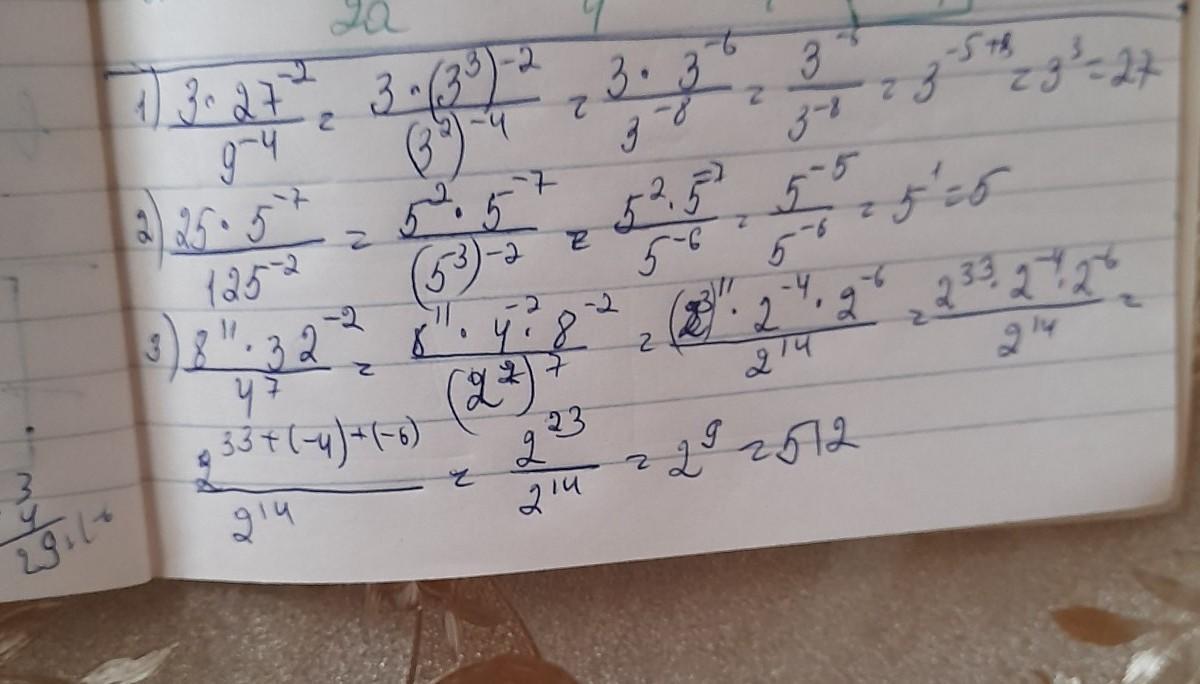 2a 4
1) (3 · 27^-2)/(9^-4) = (3 · (3^3)^-2)/((3^2)^-4) = (3 · 3^-6)/(3^-8) = (3^-5)/(3^-8) = 3^-5+8 = 3^3 = 27
2) (25 · 5^-7)/(125^-2) = (5^2 · 5^-7)/((5^3)^-2) = (5^2 · 5^-7)/(5^-6) = (5^-5)/(5^-6) = 5^1 = 5
3) (8^11 · 32^-2)/(4^7) = (8^11 · 4^-2 · 8^-2)/((2^2)^7) = ((2^3)^11 · 2^-4 · 2^-6)/(2^14) = (2^33 · 2^-4 · 2^-6)/(2^14) =
(2^33+(-4)+(-6))/(2^14) = (2^23)/(2^14) = 2^9 = 512
3
4